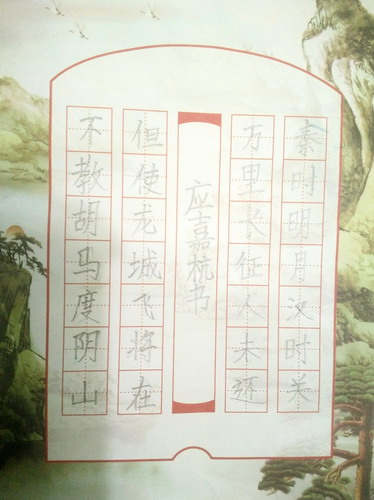 秦时明月汉时关
万里长征人未还
应嘉杭书
但使龙城飞将在
不教胡马度阴山